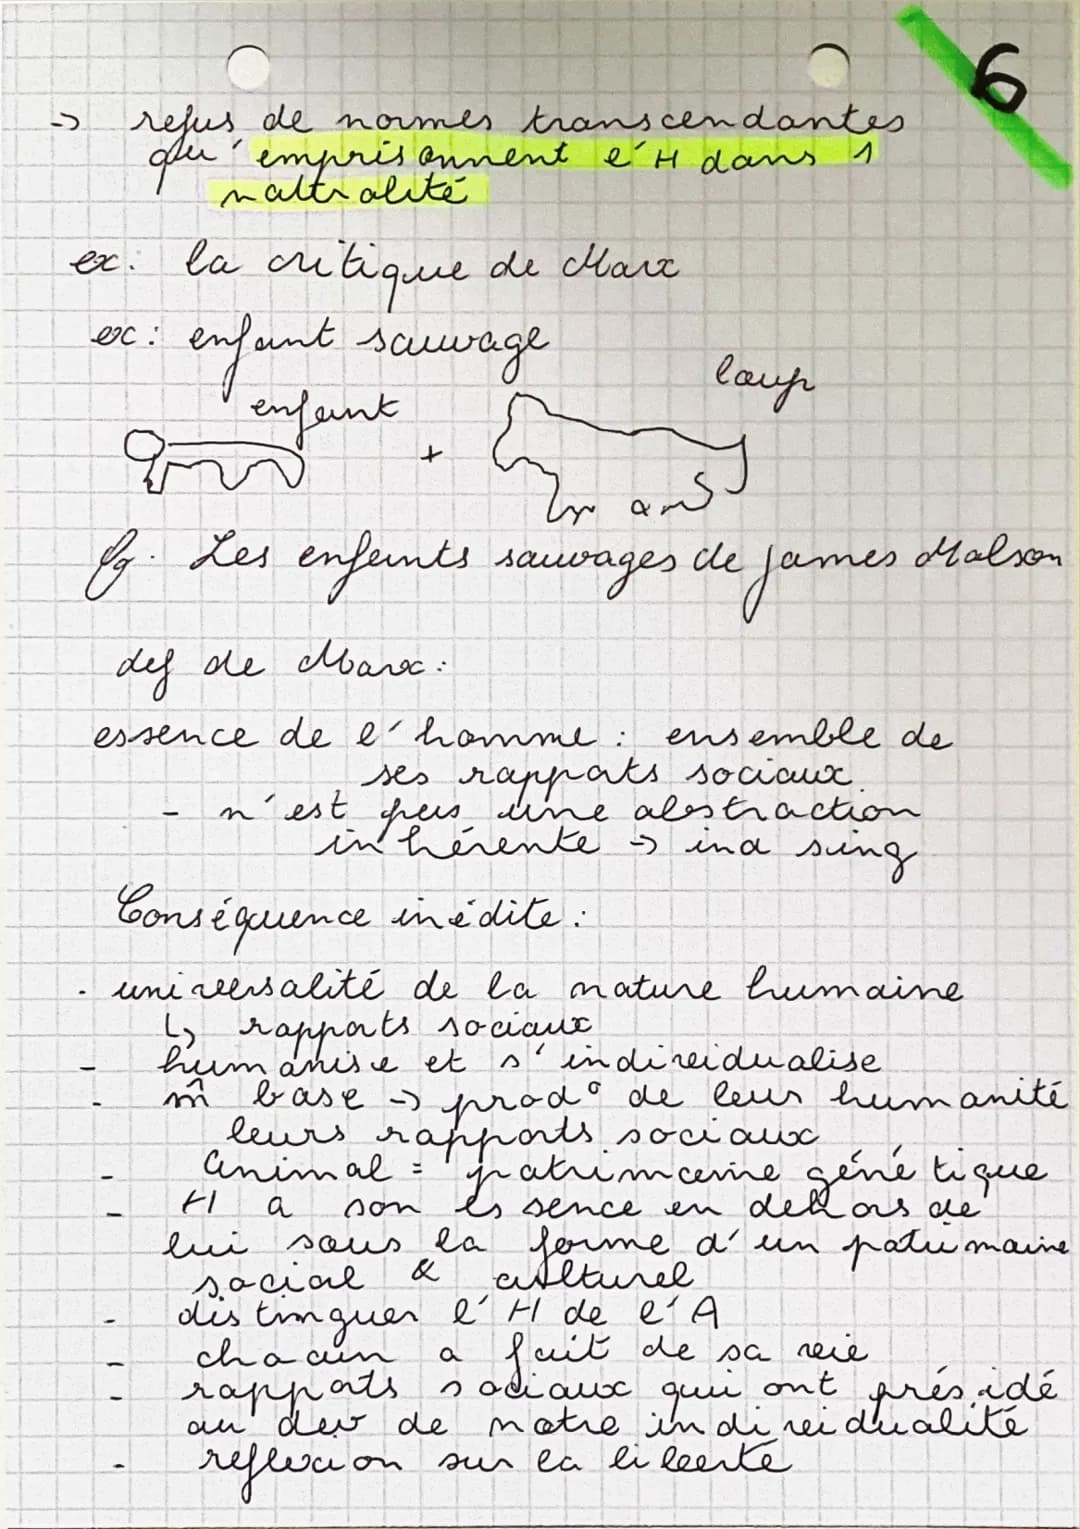 6
-> refus de normes transcendantes
qui emprisonnent l'H dans 1
naturalité
ex: la critique de Marx
ex: enfant sauvage
loup
enfant
+
Les enfants sauvages de James Malson
def de Marx:
essence de l'homme: ensemble de
ses rapports sociaux
- n'est pas une abstraction
inhérente -> ind sing
Conséquence inédite:
- universalité de la nature humaine
↳ rapports sociaux
- humanise et s'individualise
- m̂ base -> prod° de leur humanité
leurs rapports sociaux
- animal = patrimoine génétique
- H a son essence en dehors de
lui sous la forme d'un patrimoine
social & culturel
- distinguer l'H de l'A
- chacun a fait de sa vie
- rapports sociaux qui ont présidé
au dev de notre individualité
- reflexion sur la liberté